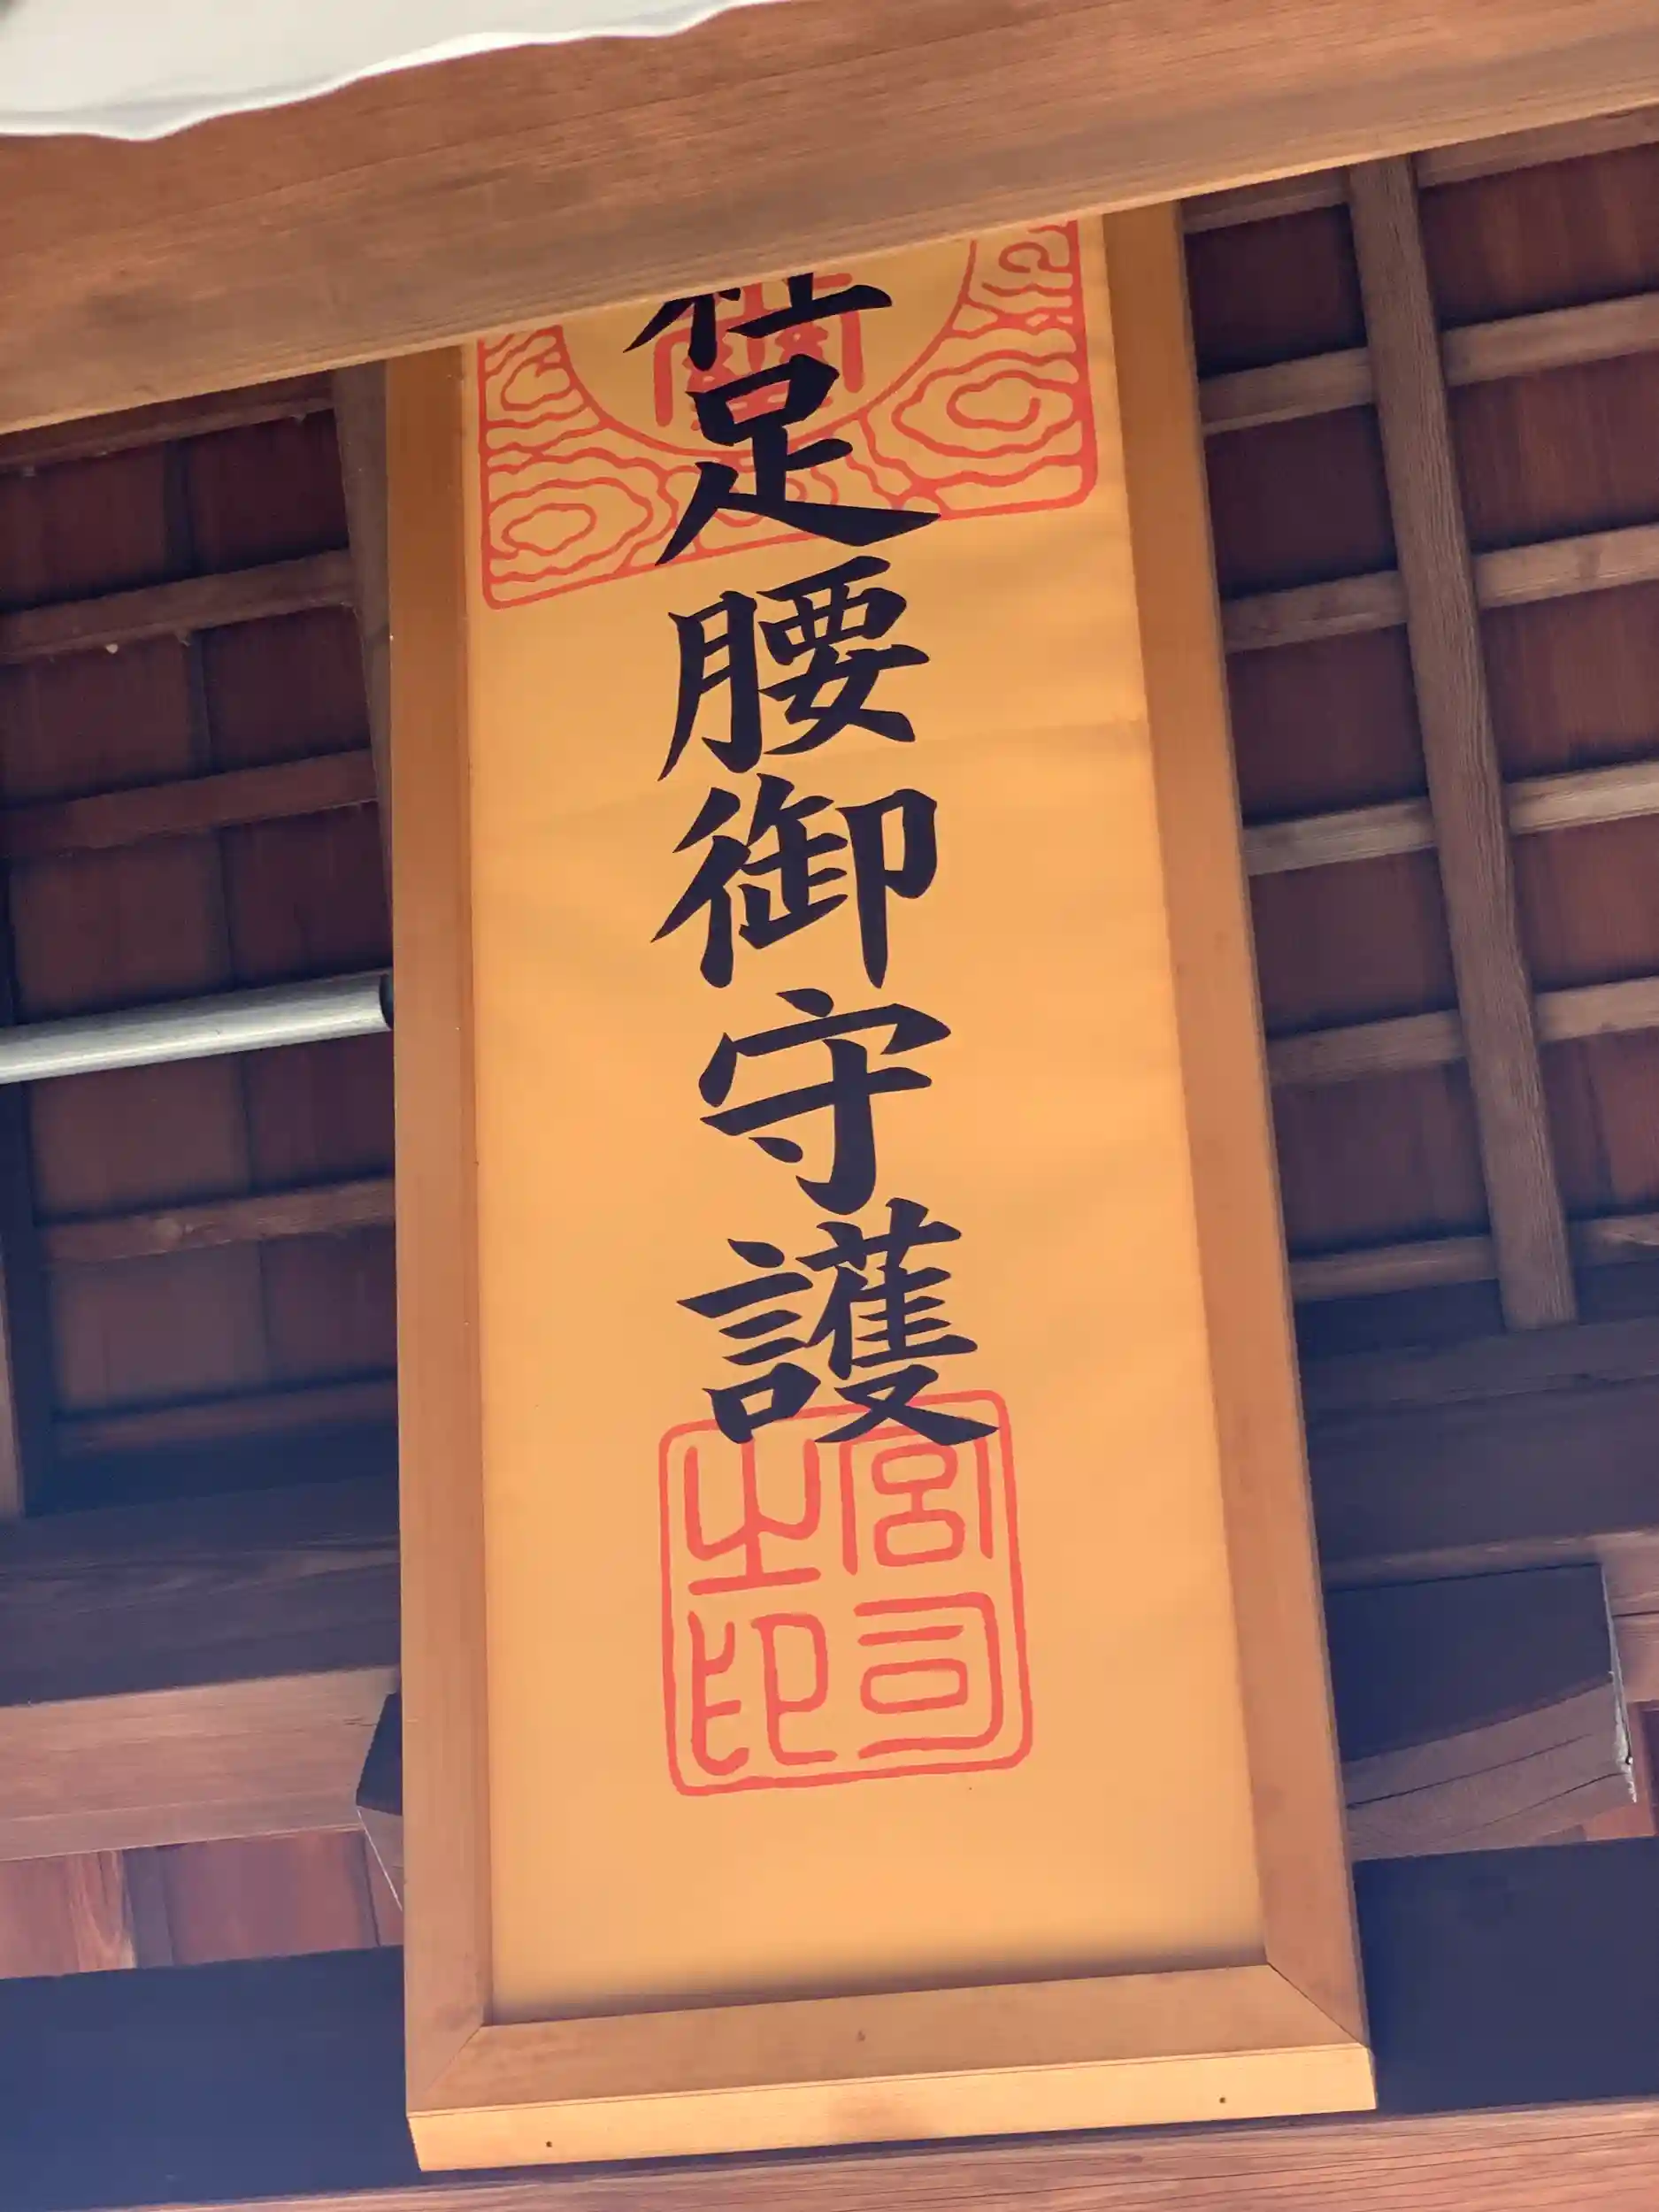 足腰御守護
宮司
之印